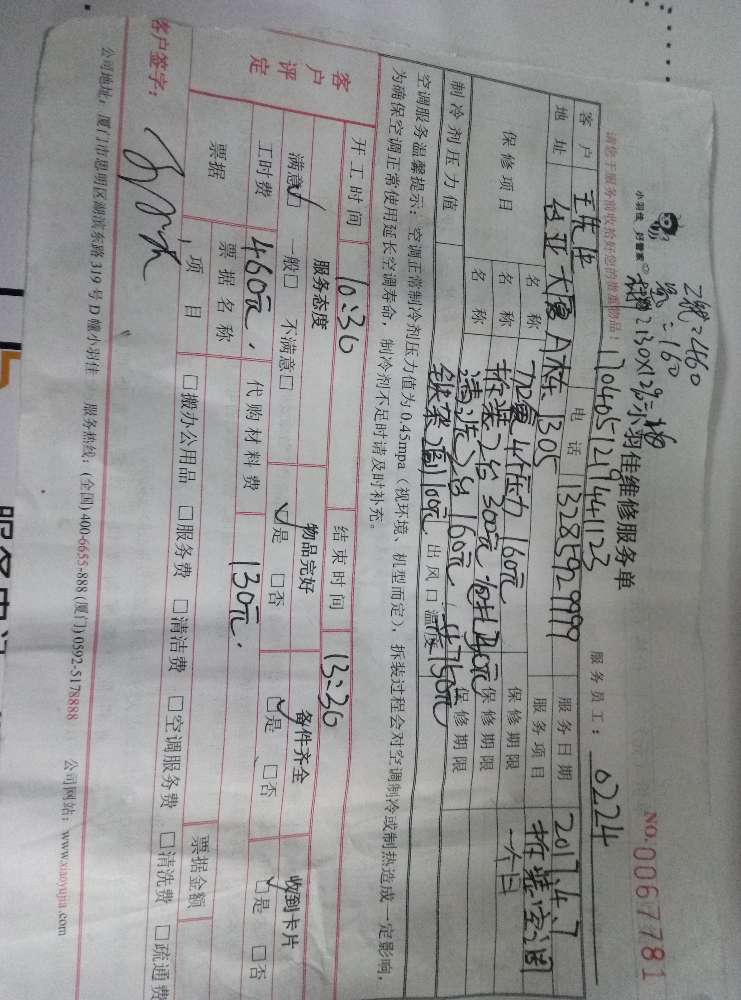 2机=460
氟=160
230×12%=
小羽佳 好管家
小羽佳维修服务单
NO.0067781
请您于服务前收拾好您的贵重物品!
1704051219441123
服务员工: 0224
客户 王先生 电话 13285929999 服务日期 2017.4.7
地址 台亚大厦A栋1305 服务项目 拆装空调
保修项目 名称 加氟4个压力 160元 保修期限 一个月
名称 拆装2台300元 保修期限
名称 清洗2台160元 保修期限
制冷剂压力值 铁架1副100元 出风口温度 共750元
空调服务温馨提示:空调正常制冷剂压力值为0.45mpa(视环境、机型而定),拆装过程会对空调制冷或制热造成一定影响,
为确保空调正常使用延长空调寿命,制冷剂不足时请及时补充。
开工时间 10:30 结束时间 13:30
客户评定
服务态度 物品完好 备件齐全 收到卡片
满意☑ 一般□ 不满意□ ☑是 □否 ☑是 □否 ☑是 □否
工时费 460元. 代购材料费 130元.
票据 票据名称 票据金额
项目 □搬办公用品 □服务费 □清洁费 □空调服务费 □清洗费 □疏通费
客户签字:
公司地址:厦门市思明区湖滨东路319号D幢小羽佳 服务热线:(全国)400-6655-888 (厦门)0592-5178888 公司网站:www.xiaoyujia.com